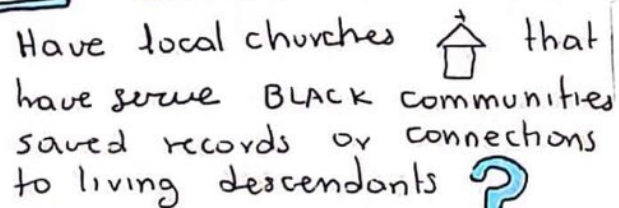 Have local churches that
have serve BLACK communities
saved records or connections
to living descendants ?